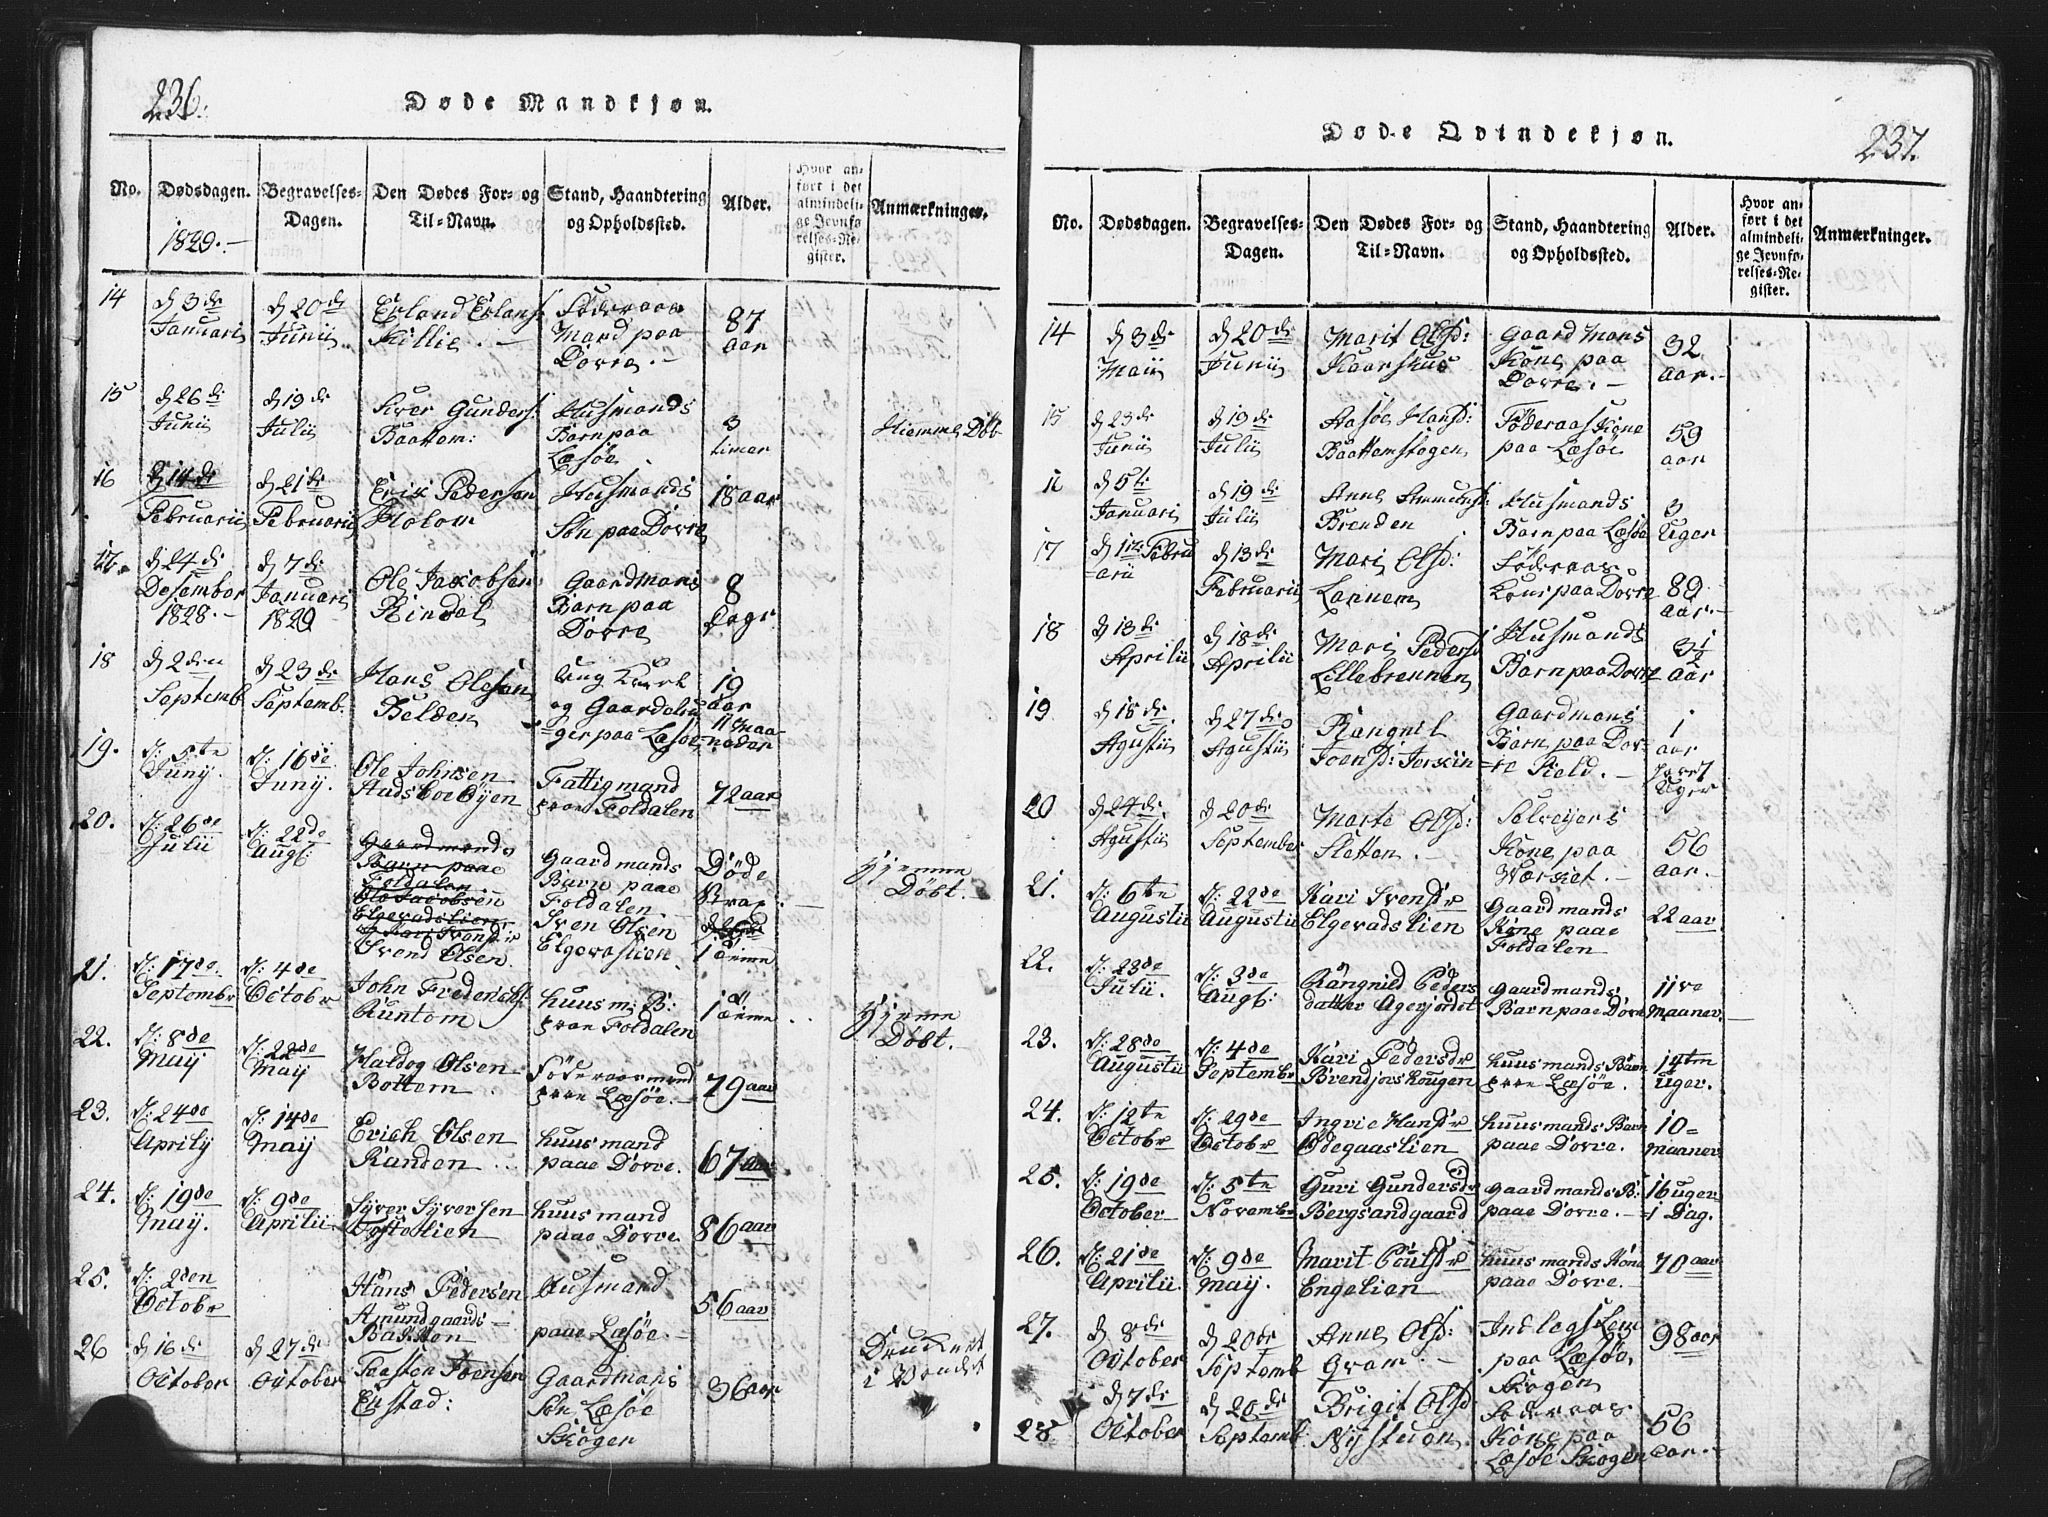 236.
Døde Mandkjøn.
No.
Dødsdagen.
1829.-
Begravelses-
Dagen.
Den Dødes For- og
Til-Navn.
Stand, Haandtering
og Opholdssted.
Alder.
Hvor an-
ført i det
almindeli-
ge Jevnfø-
relses-Re-
gister.
Anmærkninger.
14
d 3de
Januari
d 20de
Junii
Erland Erlans:
Killie.
Föderaas
Mand paa
Dovre.
87
aar
15
d 26de
Junii
d 19de
Julii
Siver Gunders:
Baattem:
Husmands
Barn paa
Læsöe
3
timer
Hiemme Döb
16
d 14de
Februarii
d 21de
Februarii
Erik Pedersen
Holom
Husmands
Sön paa Dovre
18 aar
17.
d 24de
Desember
1828.-
d 7de
Januari
1829
Ole Jacobsen
Rindal
Gaardmans
Barn paa
Dovre
8
Dage
18
d 2den
Septemb
d 23de
Septemb.
Hans Olesen
Belden
Ung Karl
og Gaardbru
ger paa Læsöe
19
aar
11 Maa-
neder
19.
d: 5te
Juny.
d: 16de
Juny.
Ole Johnsen
Fattigmand
paae Foldalen
72 aar
20.
d: 26de
Julii
d: 22de
Augt:
Gaardmands
Barn paae
Foldalen
Ole Jacobsen
Elgevadslien
Svend Olsen.
Gaardmands
Barn paae
Foldalen.
Sven Olsen
Elgevaslien.
Döde
Strax
Hjemme
Döbt.
21.
d: 17de
Septembr
d: 4de
Octobr
John Frederichs:
Runtom
huusm: B:
paae Foldalen
Hjemme
Döbt.
22.
d: 8de
May
d: 22de
May
Haldog Olsen
Bottem
Föderaasmand
paae Læsöe.
79 aar
23.
d: 24de
Aprily
d: 14de
May
Erich Olsen
Randen
huusmand
paae Dovre.
67 aar
24.
d: 19de
May.
d: 9de
Aprilii
Syver Syversen
huusmand
paae Dovre.
86 aar
25.
d: 2den
Octobr
Hans Pedersen
Amundgaards-
Bakken
Husmand
paae Læsöe.
56 aar
26
d 16de
October
d 27de
October
Joensen
Enstad:
Gaardmans
Sön Læsöe
Skogen
36 aar
Druknet
i Vandet
237.
Døde Qvindekjøn.
No.
Dødsdagen.
Begravelses-
Dagen.
Den Dødes For- og
Til-Navn.
Stand, Haandtering
og Opholdssted.
Alder.
Hvor an-
ført i det
almindeli-
ge Jevnfø-
relses-Re-
gister.
Anmærkninger.
14
d 3de
Maii
d 20de
Junii
Marit Olsd:
Kaarshus
Gaard Mans
Kone paa
Dovre.
32
aar.
15
d 23de
Junii
d 19de
Julii
Aasöe Hansd:
Baattemstogen
Föderaas Kone
paa Læsöe
59
aar
16
d 5te
Januari
d 19de
Julii
Anne Ammunsd:
Brenden
Husmands
Barn paa Læsöe
3
Uger
17
d 1ste Febru
arii
d 13de
Februarii
Mari Olsd:
Lannem
Föderaas
Kone paa Dovre
89
aar.
18
d 13de
Aprilii
d 18de
Aprilii
Mari Pedersd
Lillebrennen
Husmands
Barn paa Dovre
3½
aar
19
d 18de
Agustii
d 27de
Agustii
Rangnil
Joensd:
Gaardmans
Barn paa Dov-
re Field.
1
aar
Uger
20
d 24de
Agustii
d 20de
September
Marte Olsd:
Sletten.
Selveyers
Kone paa
Værket.
56
aar.
21.
d: 6te
Augustii
d: 22de
Augustii
Kari Svensdr
Elgevadslien
Gaardmands
Kone paae
Foldalen
22 aar
22.
d: 23de
Julii.
d: 3de
Augt:
Rangnild Peders
datter Agerjordet
Gaardmands
Barn paae Dovre
11ve
Maaner.
23.
d: 28de
Augustii
d: 4de
Septembr
Kari Pedersdr
Brendjorskougen
huusmands Barn
paae Læsöe.
14ten
Uger.
24.
d: 12te
Octobr
d: 29de
Octobr
Ingvie Hansdr
Ödegaaslien
huusmands Barn
paae Dovre.
10=
maaner
25.
d: 19de
October
d: 5te
Novembr
Guri Gundersdr
Bergsandgaard
gaardmands B:
paae Dovre.
16 uger
1 Dag.
26.
d: 21de
Aprilii
d: 9de
May.
Marit Poulsdr
Engelien
huusmands Kone
paae Dovre.
70 aar
27.
d 8de
October
d 20de
Septemb
Anne Olsd:
Gram.
Indlegslem
paa Læsöe
Skogen
98 aar
28
d 7de
October
d 20de
Septemb:
Brigit Olsd
Nystuen.
Föderaas
Kone paa
Læsöe Skogen
56
aar.